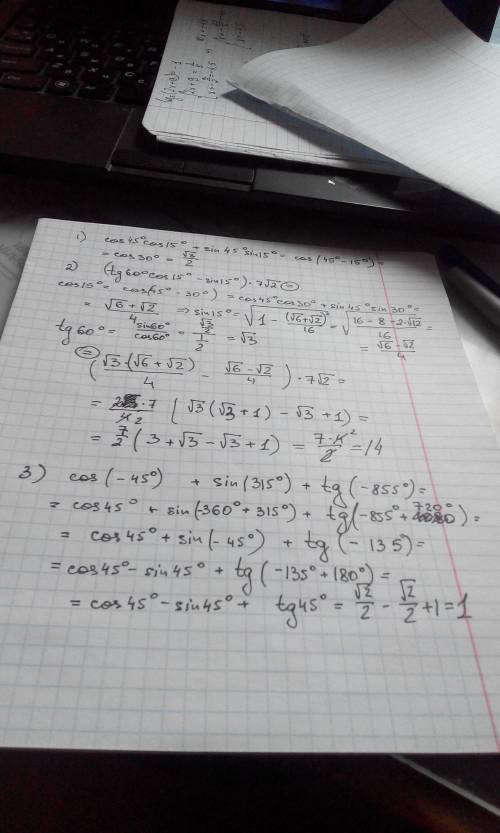 1) cos45°cos15° + sin45°sin15° = cos(45°-15°) =
= cos30° = √3/2
2) (tg60°cos15° - sin15°)·7√2 =
cos15° = cos(45°-30°) = cos45°cos30° + sin45°sin30° =
= (√6+√2)/4 ⇒ sin15° = √(1 - (√6+√2)²/16) = √((16-8-2·√12)/16) =
= (√6-√2)/4
tg60° = sin60°/cos60° = (√3/2)/(1/2) = √3
= (√3·(√6+√2)/4 - (√6-√2)/4)·7√2 =
·7 (√3(√3+1) - √3+1) =
= 7/2 (3+√3-√3+1) = 7·4/2 = 14
3) cos(-45°) + sin(315°) + tg(-855°) =
= cos45° + sin(-360°+315°) + tg(-855°+720°) =
= cos45° + sin(-45°) + tg(-135°) =
= cos45° - sin45° + tg(-135°+180°) =
= cos45° - sin45° + tg45° = √2/2 - √2/2 + 1 = 1